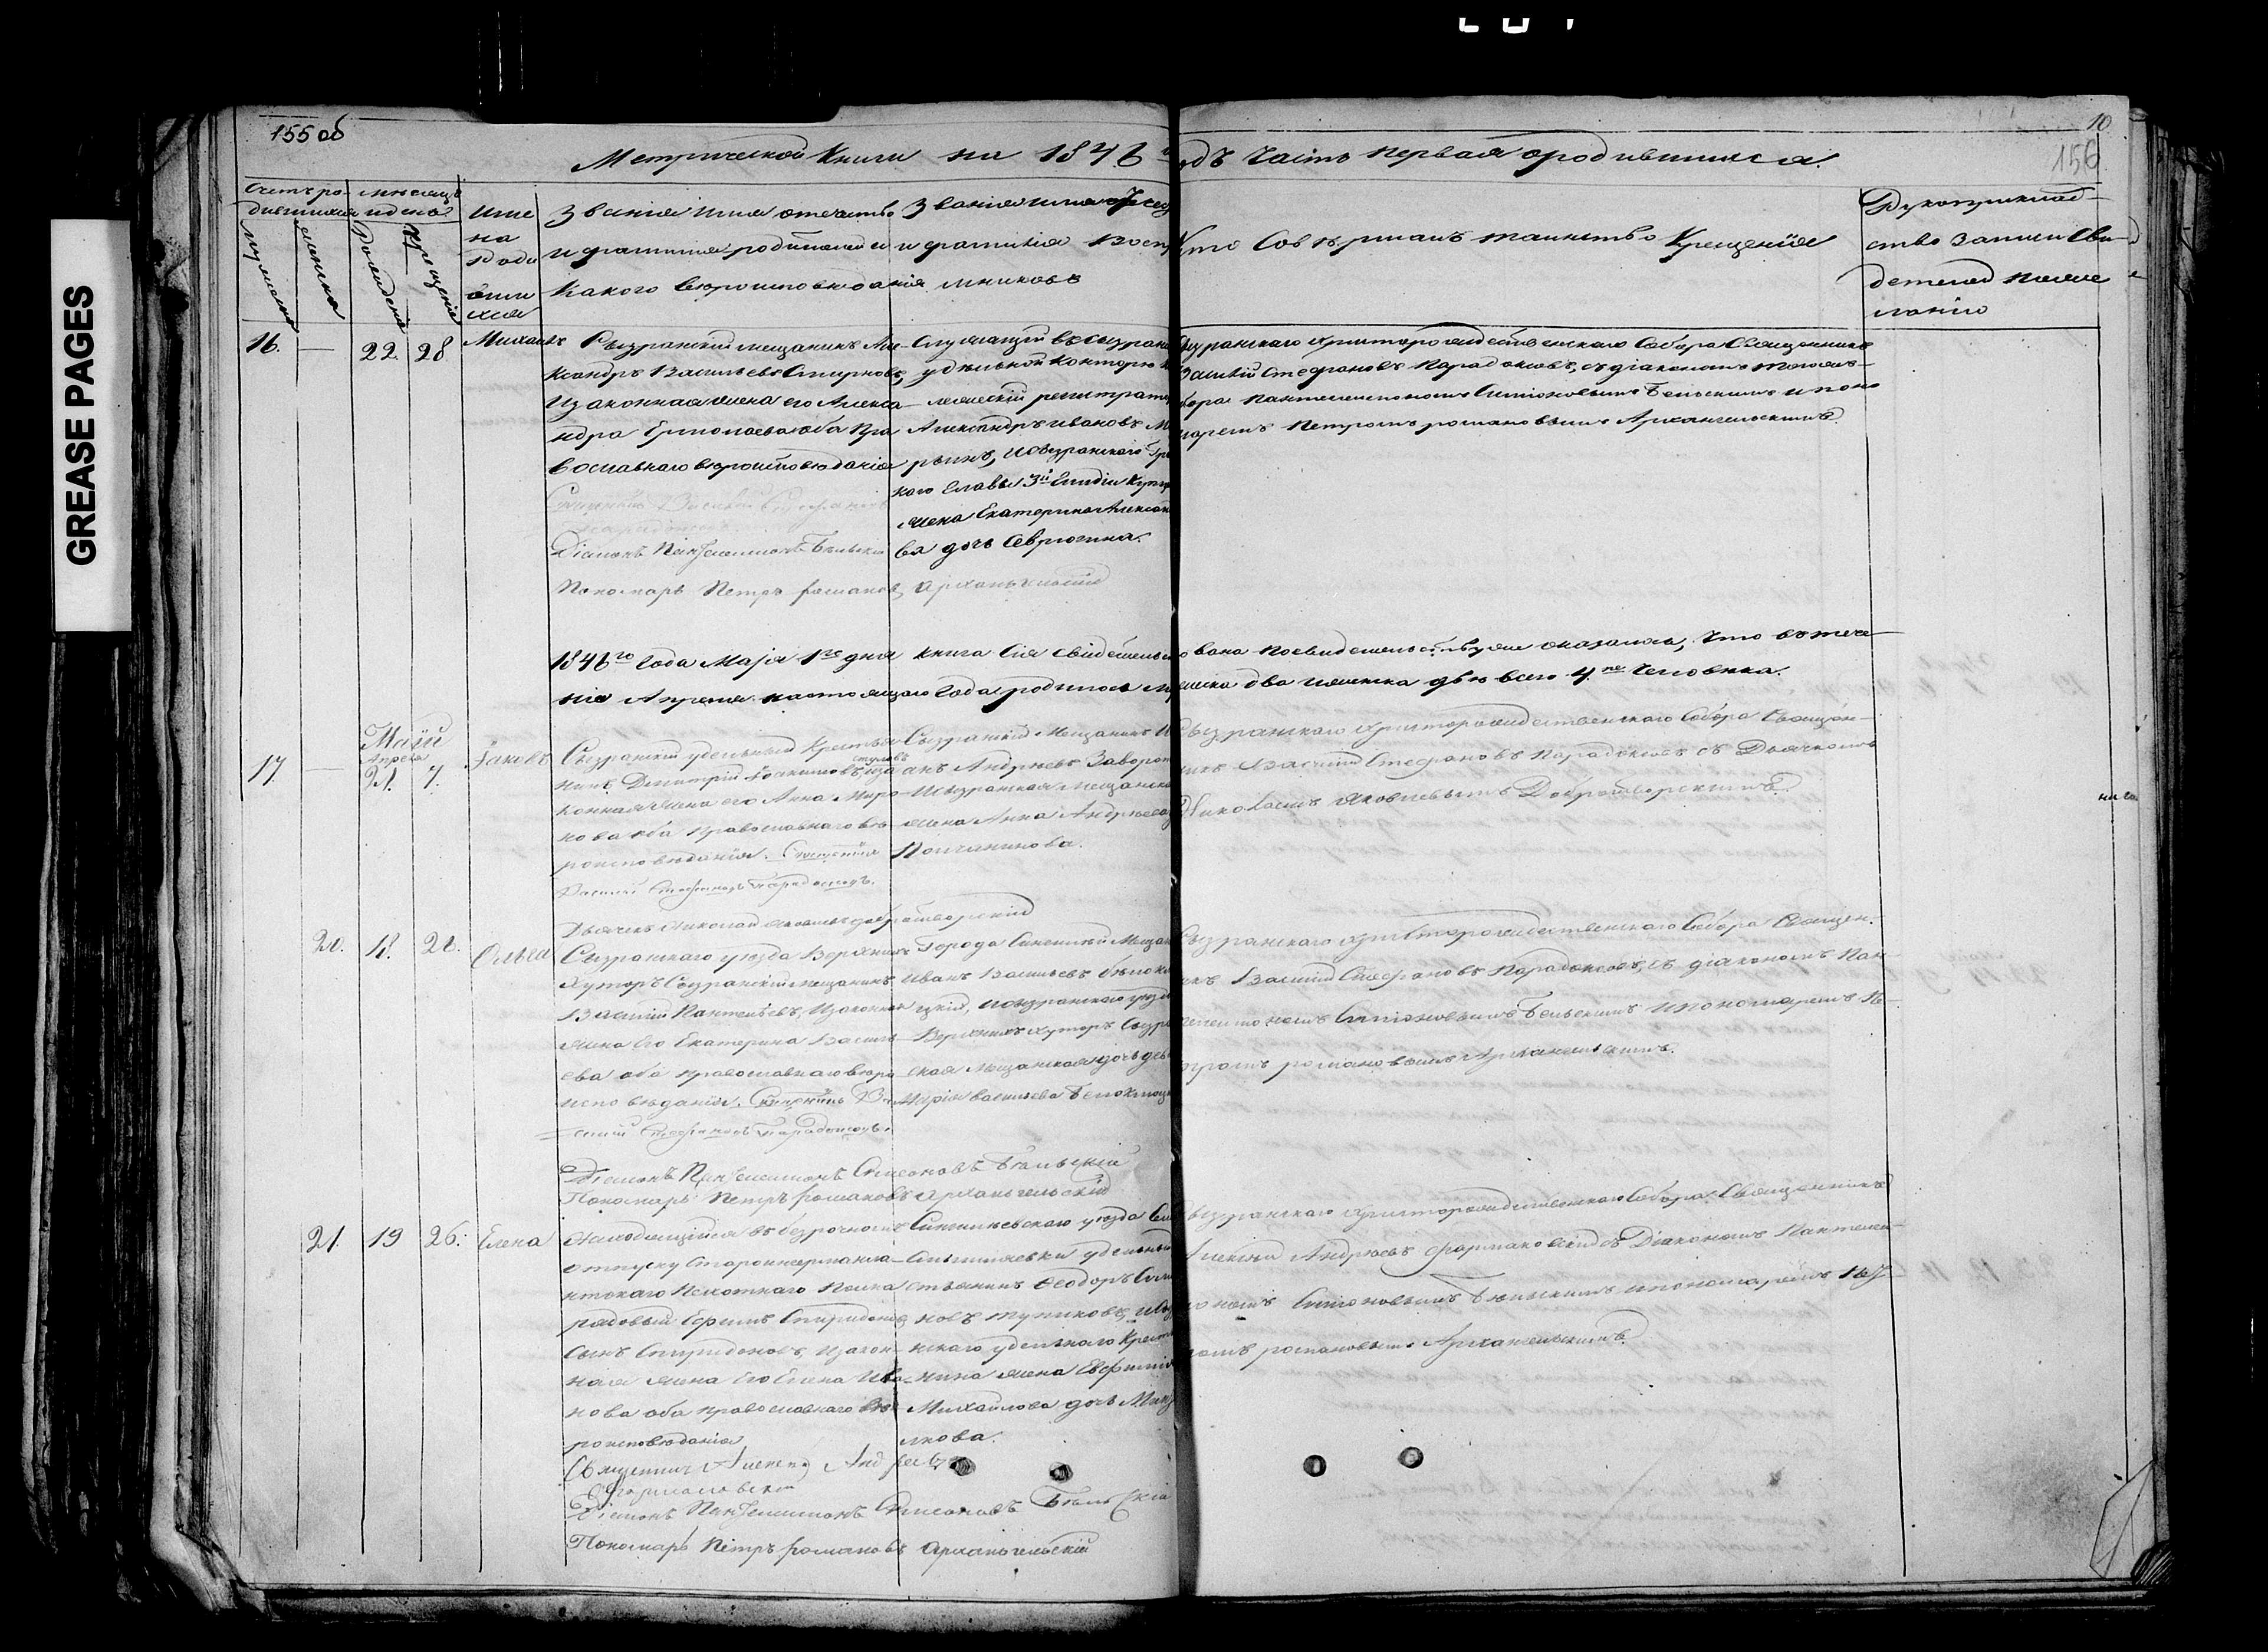 GREASE PAGES
155 об
10
156
Метрической Книги на 1846 годъ Часть первая о родившихся.
Счетъ ро-
дившихся
мужеска
женска
месяцъ
и день
рождения
крещенія
Име
на
роди
вши
хся
Званіе имя отечество
и фамилія родителей и
Какого вероисповеданія
Званіе имя отчес
и фамилія восп
мниковъ
Кто Совершалъ таинство Крещенія
Рукоприклад-
ство записи Сви-
детелей по же
ланію
16. — 22. 28. Михаилъ
Сызранский мещанинъ Але-
ксандръ Васильевъ Смирновъ,
и законная жена его Алекса-
ндра Ермолаева оба Пра
вославнаго вероисповеданія
Священникъ Василий Стефановъ
Діаконъ Пантелеимонъ Бельски
Пономарь Петръ романовъ Архангельский
Служащий въ Сызран
удельной конторе к
лежскій регистрат
Александръ ивановъ М
рынъ, и Сызранскаго Гре
каго Главы 3й Гилдіи Купц
жена Екатерина Алексан
ва дочь Севрюгина.
Сызранскаго Христорождественскаго Собора Священникъ
Василий Стефановъ Парадоксовъ, съ діакономъ тогожъ
собора Пантелеимономъ Симоновымъ Бельскимъ и поно
маремъ Петромъ романовымъ Архангельскимъ.
1846го Года Маія 1го дня книга Сія свидетельствована по свидетельству же оказалось, что въ тече-
ніе Апреля настоящаго Года родилось мужеска два и женска две всего 4ре Человека.
Маій
Апреля
17 — 21. 7. Іаковъ
Сызранскій удельный Крестья
нинъ Димитрій Іоакимовъ, и за
конная жена его Анна Миро-
нова оба православнаго ве-
роисповеданія. Священникъ
Василий Стефановъ Парадоксовъ.
Дьячекъ Николай Яковлевъ Добротворский
Сызранскій Мещанинъ И
анъ Андреевъ Заворот
и Сызранская Мещанска
жена Анна Андреева
Полчанинова.
Сызранскаго Христорождественскаго Собора Священ-
никъ Василий Стефановъ Парадоксовъ съ Дьячкомъ
Николаемъ Яковлевымъ Добротворскимъ.
20. 18. 22. Ольга
Сызранскаго уезда Верхних
Хуторъ Сызранскій мещанинъ
Василий Пантелеевъ, и законная
жена Его Екатерина Василь-
ева оба православнаго веро
исповеданія. Священникъ Ва
силий Стефановъ Парадоксовъ.
Діаконъ Пантелеимонъ Симеоновъ Бельскій
Пономарь Петръ романовъ Архангельский
Города Сенгилей Мещан
Иванъ Васильевъ белокл
цкій, и Сызранскаго уезда
Верхнихъ хуторъ Сызра
ская Мещанская дочь дев
Марія васильева Белоключ
Сызранскаго Христорождественскаго Собора Священ.
никъ Василий Стефановъ Парадоксовъ, съ діакономъ Пан-
телеимономъ Симоновымъ Бельскимъ и пономаремъ Пе-
тромъ романовымъ Архангельскимъ.
21. 19 26. Елена
Находящійся въ безсрочномъ
отпуску Староингерманла-
нтскаго Пехотнаго Полка
рядовый Ефимъ Спиридоновъ
Сынъ Спиридоновъ, и закон-
ная жена Его Елена Ива-
нова оба православнаго ве-
роисповеданія
Священникъ Алексей Андреевъ
Фармаковский
Діаконъ Пантелеимонъ Симеоновъ Бельскій
Пономарь Петръ романовъ Архангельский
Сингилеевскаго уезда Сел
удельный
стьянинъ Феодоръ Сим
новъ тупиковъ, и Сыз
нскаго удельнаго Крест
нина жена Евфимія
Михайлова дочь
лкова.
Сызранскаго Христорождественскаго Собора Священникъ
Алексей Андреевъ Фармаковскій съ Діакономъ Пантелеи-
мономъ Симоновымъ Бельскимъ и пономаремъ Пет-
ромъ романовымъ Архангельскимъ.